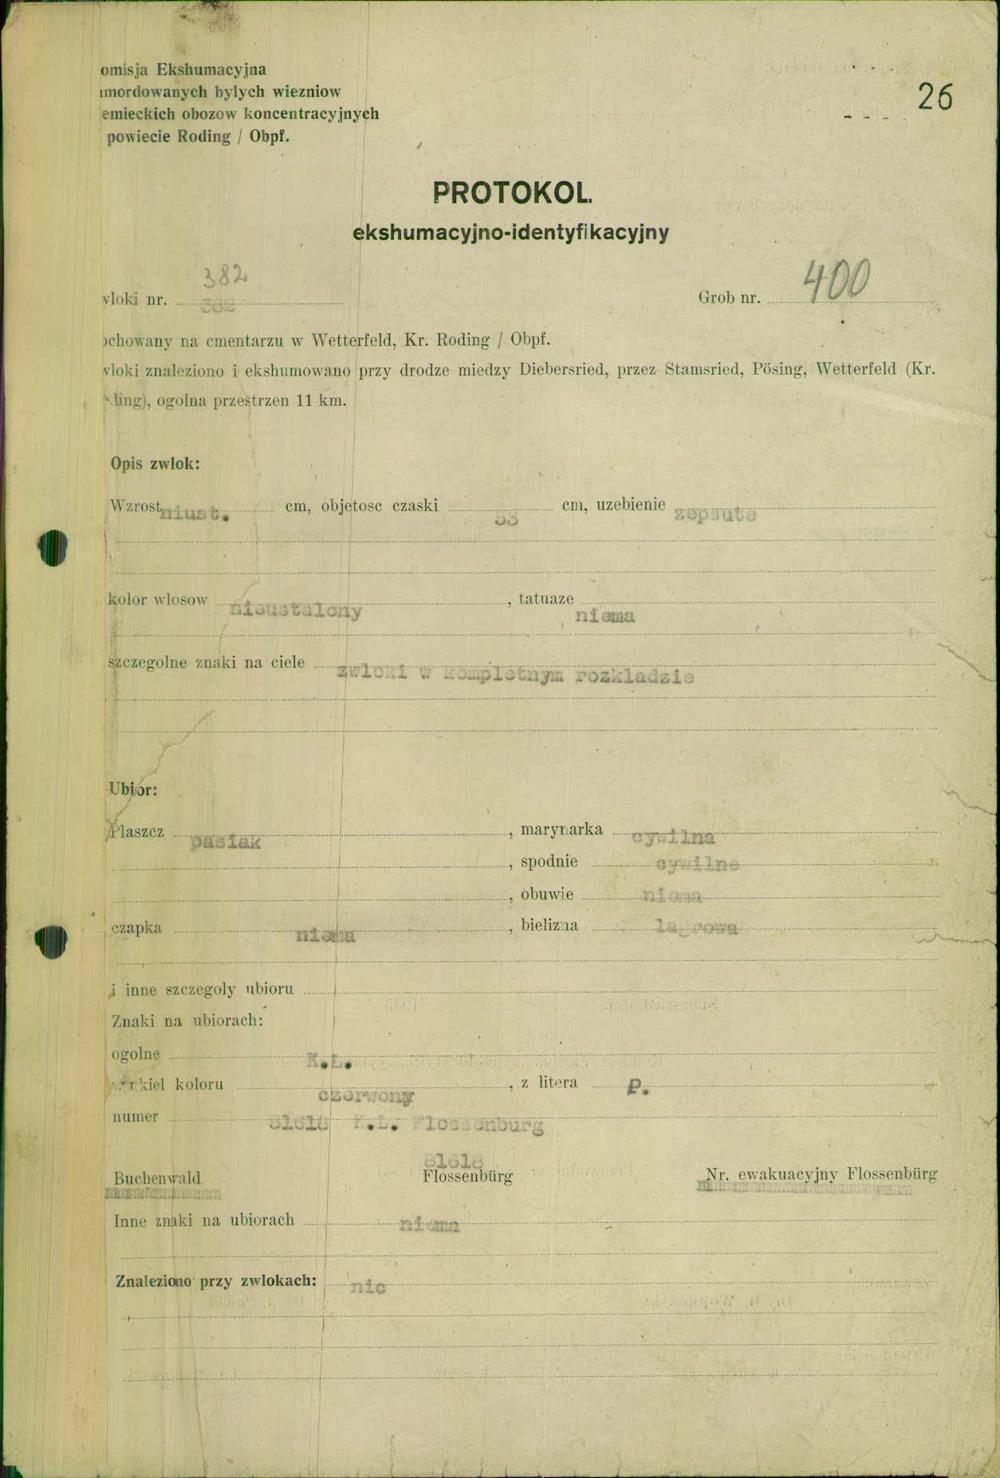 omisja Ekshumacyjna
mordowanych bylych wiezniow
emieckich obozow koncentracyjnych
powiecie Roding / Obpf.
26
PROTOKOL
ekshumacyjno-identyfikacyjny
382
vloki nr. 382 Grob nr. 400
ochowany na cmentarzu w Wetterfeld, Kr. Roding / Obpf.
vloki znaleziono i ekshumowano przy drodze miedzy Diebersried, przez Stamsried, Pösing, Wetterfeld (Kr.
ding), ogolna przestrzen 11 km.
Opis zwlok:
Wzrost niust. cm, objetosc czaski 53 cm, uzebienie zepsute
kolor wlosow nieustalony , tatuaze niema
szczegolne znaki na ciele zwloki w kompletnym rozkladzie
Ubior:
Plaszcz pasiak , marynarka cywilna
, spodnie cywilne
, obuwie niema
czapka niema , bielizna lagrowa
i inne szczegoly ubioru
Znaki na ubiorach:
ogolne K.L.
rkiel koloru czerwony , z litera P.
numer 81618 K.L. Flossenburg
81618
Buchenwald Flossenbürg Nr. ewakuacyjny Flossenbürg
Inne znaki na ubiorach niema
Znaleziono przy zwlokach: nic